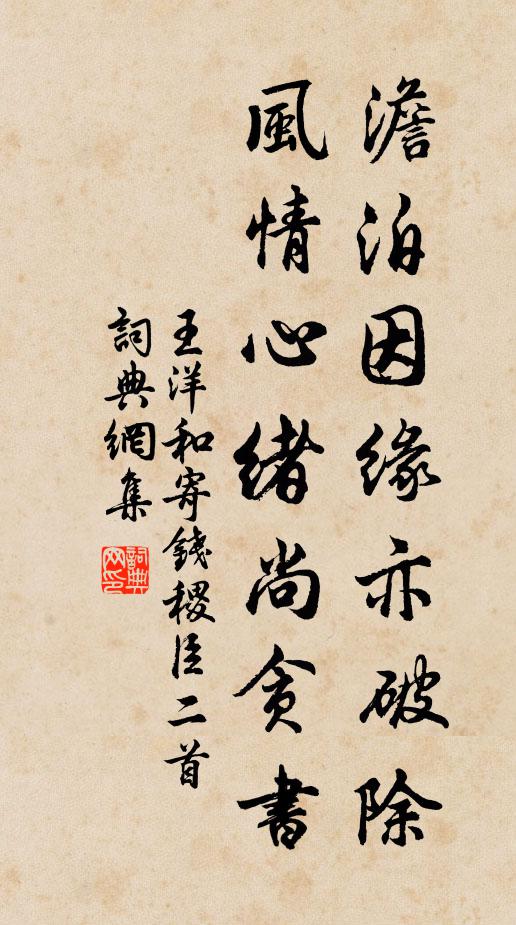 澹泊因緣亦破除
風情心緒尚貪書
王洋和寄錢稷臣二首
詞典網集
詞典網印